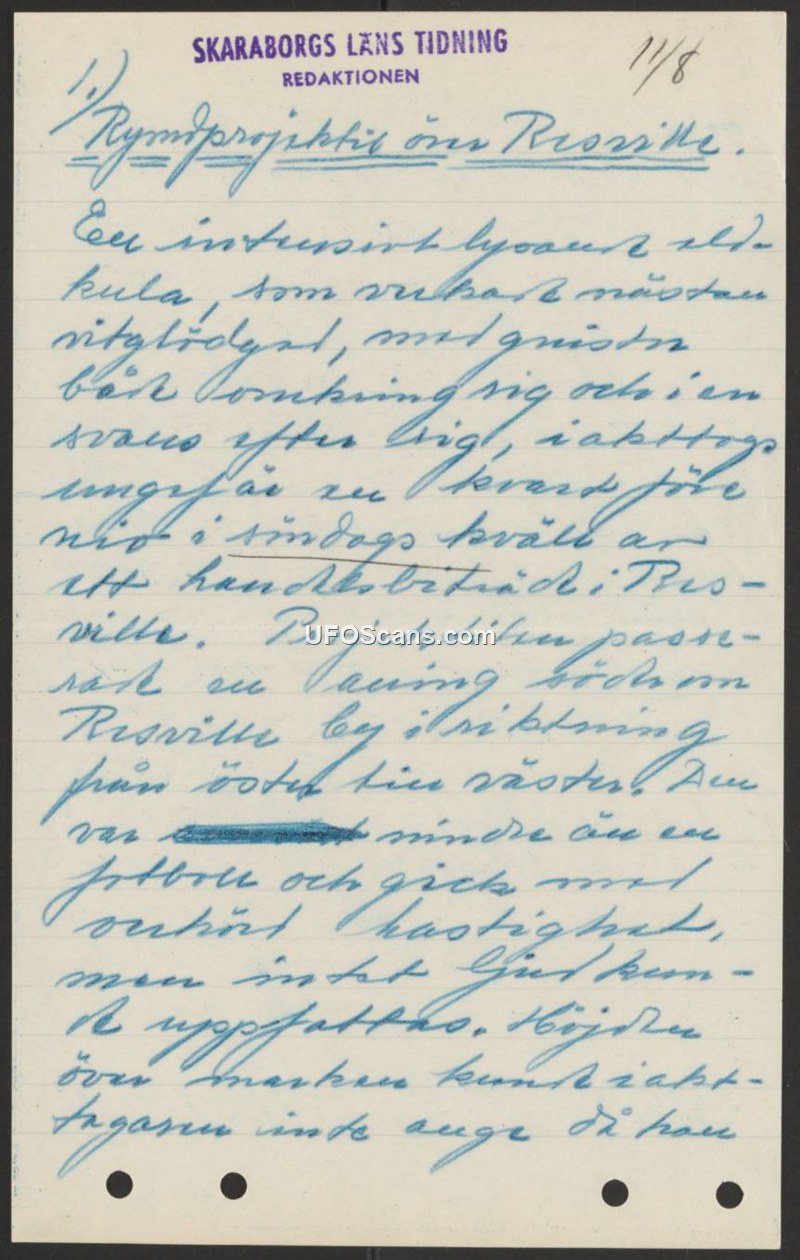 SKARABORGS LÄNS TIDNING
REDAKTIONEN
11/8
1.)
Rymdprojektil över Resville.
En intensivt lysande eld-
kula, som verkade nästan
vitglödgad, med gnistor
både omkring sig och i en
svans efter sig, iakttogs
ungefär en kvart före
nio i söndags kväll av
ett handelsbiträde i Res-
ville. Projektilen passe-
rade en aning söder om
Resville by i riktning
från öster till väster. Den
var mindre än en
fotboll och gick med
oerhörd hastighet,
men intet ljud kun-
de uppfattas. Höjden
över marken kunde iakt-
tagaren inte ange då han
UFOScans.com